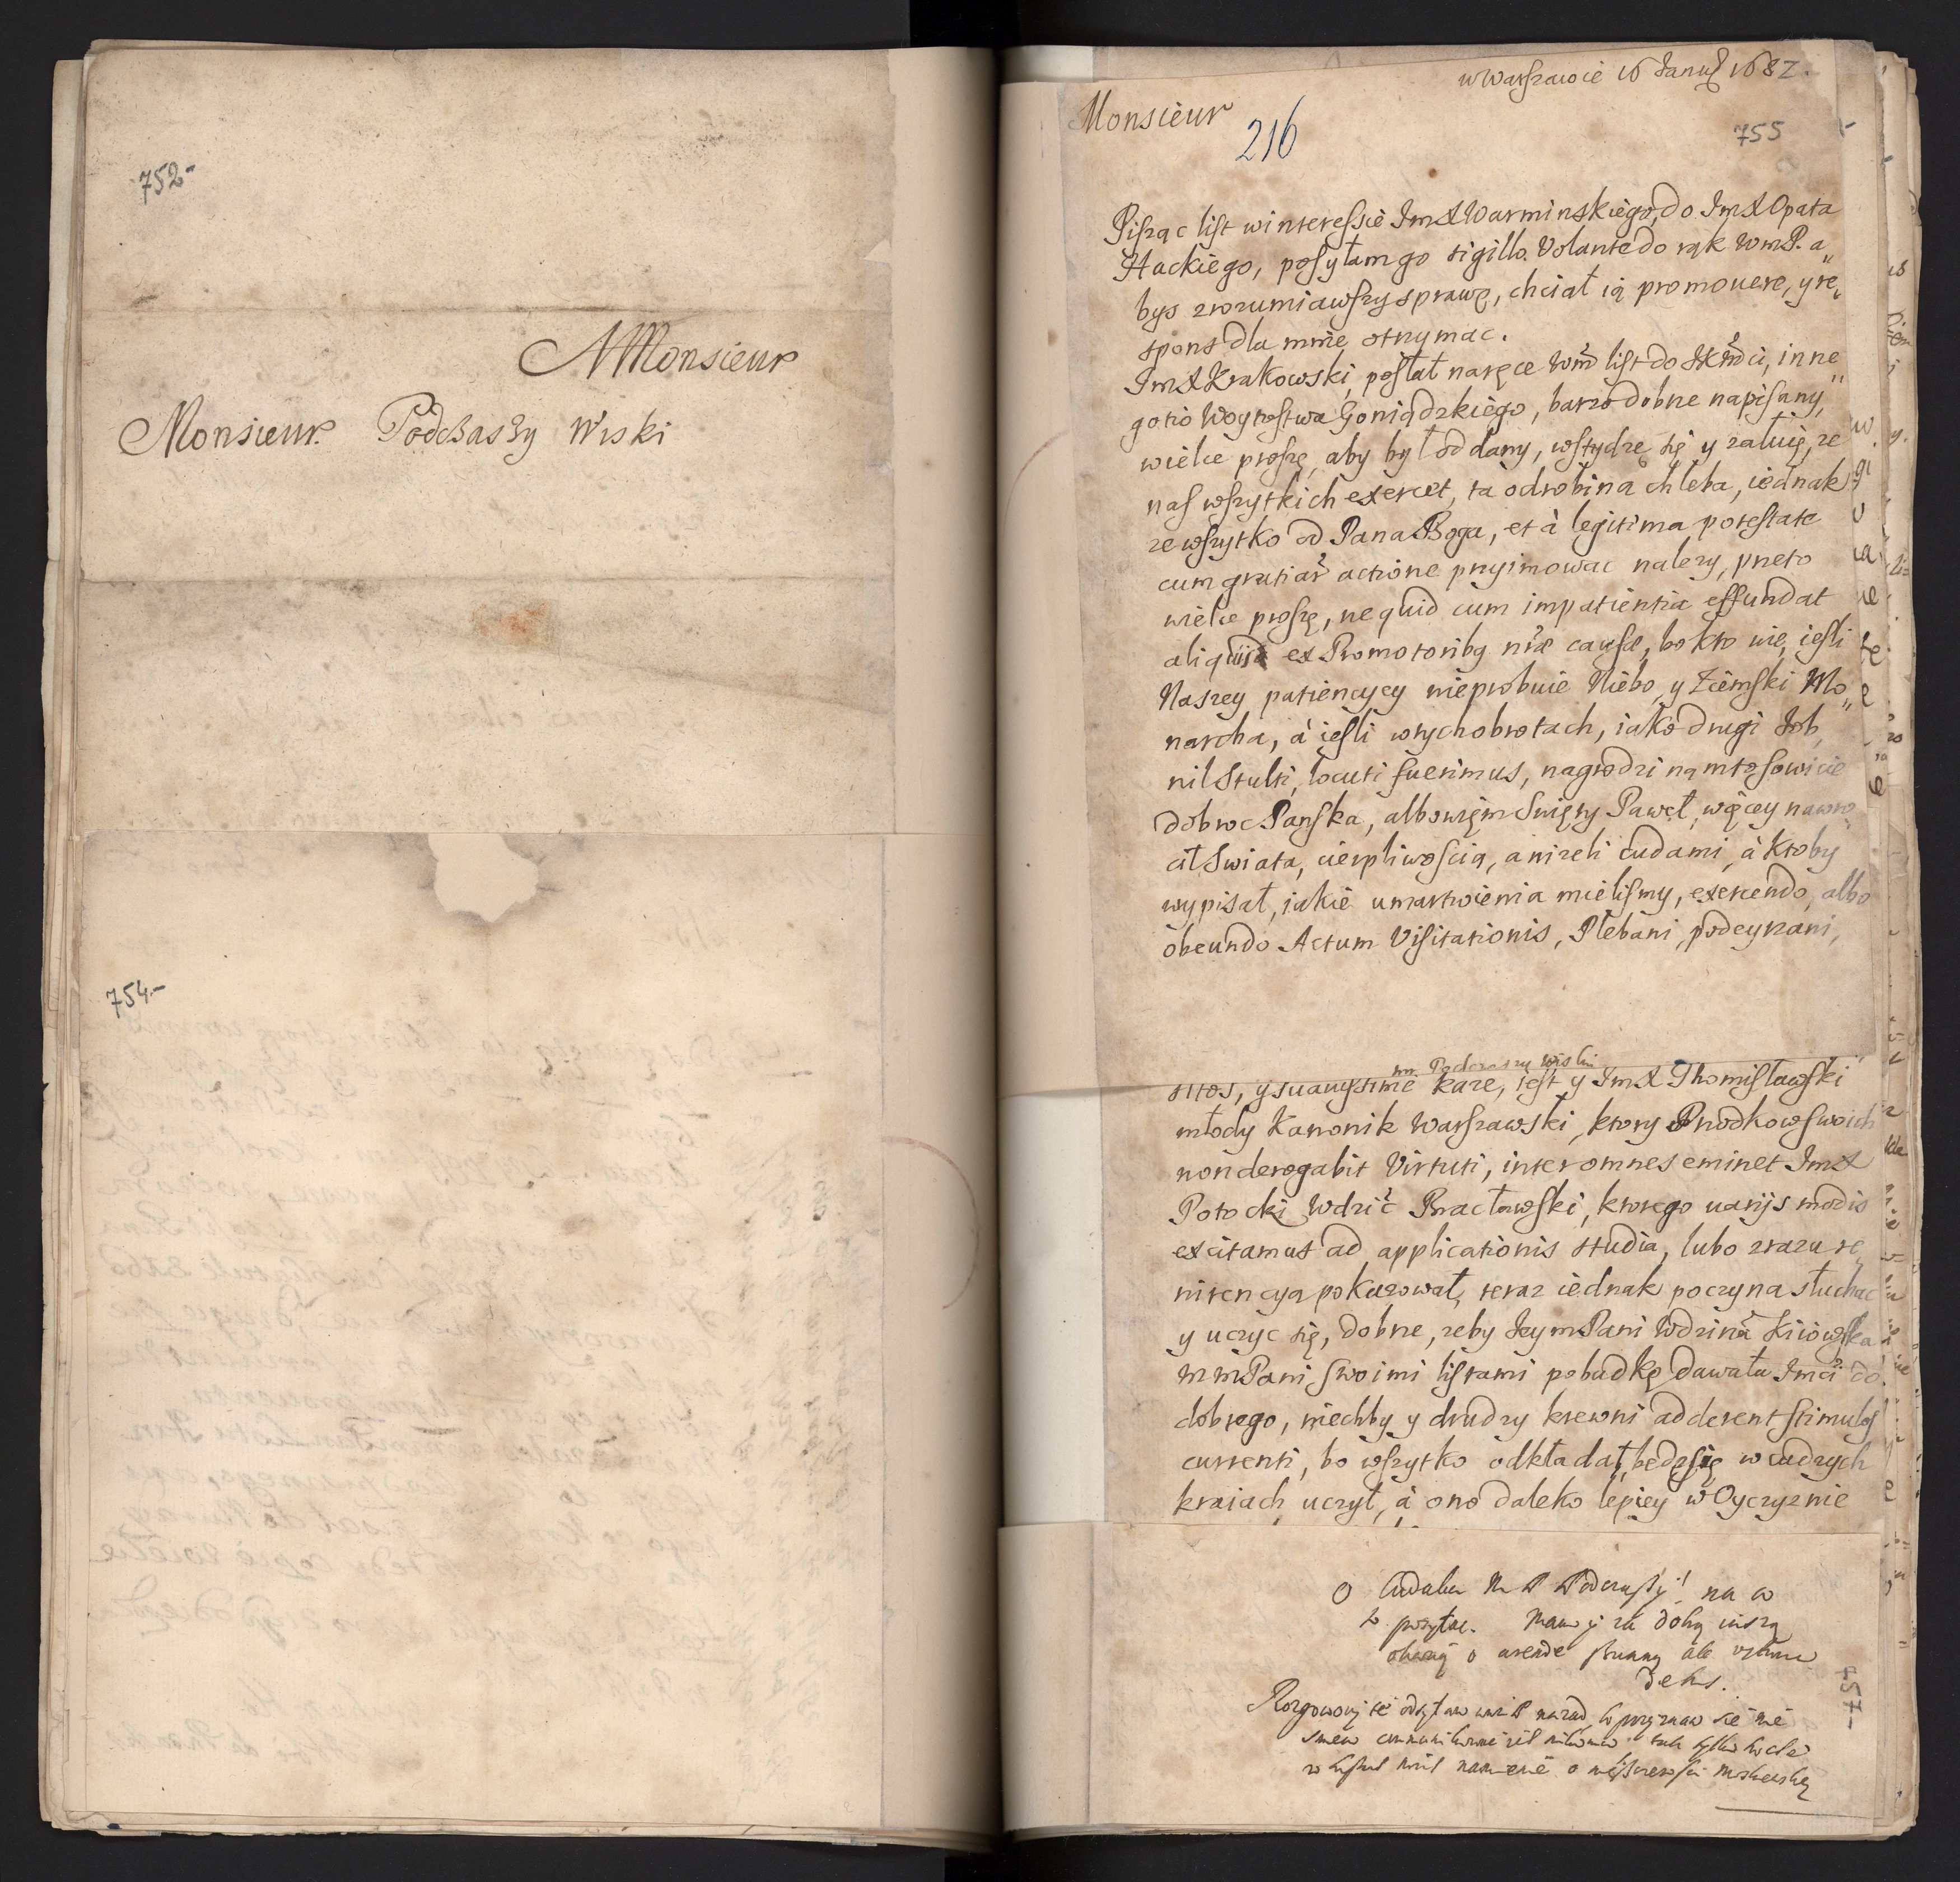 752-
A Monsieur
Monsieur Podczaszy Wiski
754-
w Warszawie 16 Janu 1682.
Monsieur
216
755
Pisząc list w interessie Jm X Warminskiego, do Jm X Opata
Hackiego, posyłam go sigillo Volante do rąk WmP. a„
bys zrozumiawszy sprawę, chciał ią promouere, y re„
spons dla mnie otrzymac.
Jm X Krakowski, posłał na ręce Wm list do JKMci, inne„
go tio Woytostwa Goniądzkiego, barzo dobrze napisany,
wielce proszę, aby był oddany, wstydzę się y załuię, ze
nas wszytkich exercet, ta odrobina chleba, iednak
ze wszytko od Pana Boga, et à legitima potestate
cum gratiar actione przyimowac nalezy, przeto
wielce proszę, ne quid cum impatientia effundat
aliquis ex Promotoribq nræ causæ, bo kto wie, iesli
Naszey patiencycy nieprobuie Niebo, y Ziemski Mo„
narcha, à iesli w tych obrotach, iako drugi Job,
nil Stulti, locuti fuerimus, nagrodzi nam to sowicie
dobroc Panska, albowięm Swięty Paweł, więcey nawro„
cił Swiata, cierpliwoscią, anizeli cudami, à ktoby
wypisał, iakie umartwienia mielismy, exercendo, albo
obeundo Actum Visitationis, Plebani podeyrzani,
mm Podczaszy Wiski
sitos, y suauyssime kaze, iest y Jm X Thomisławski
młody Kanonik Warszawski, ktory Przodkow swoich
non derogabit Virtuti, inter omnes eminet Jm X
Potocki Wdzic Bracławski, ktorego uarijs modis
excitamus ad applicationis studia, lubo zrazu re„
nitencyą pokazował, teraz iednak poczyna słuchac
y uczyc się, dobrze, zeby Jeym Pani Wdzina Kiiowska
MmPani swoimi listami pobudkę dawała Jmci do
dobrego, niechby y drudzy krewni adderent stimulos
currenti, bo wszytko odkładał, będę się w cudzych
kraiach uczył, à ono daleko lepiey w Oyczyznie
757-